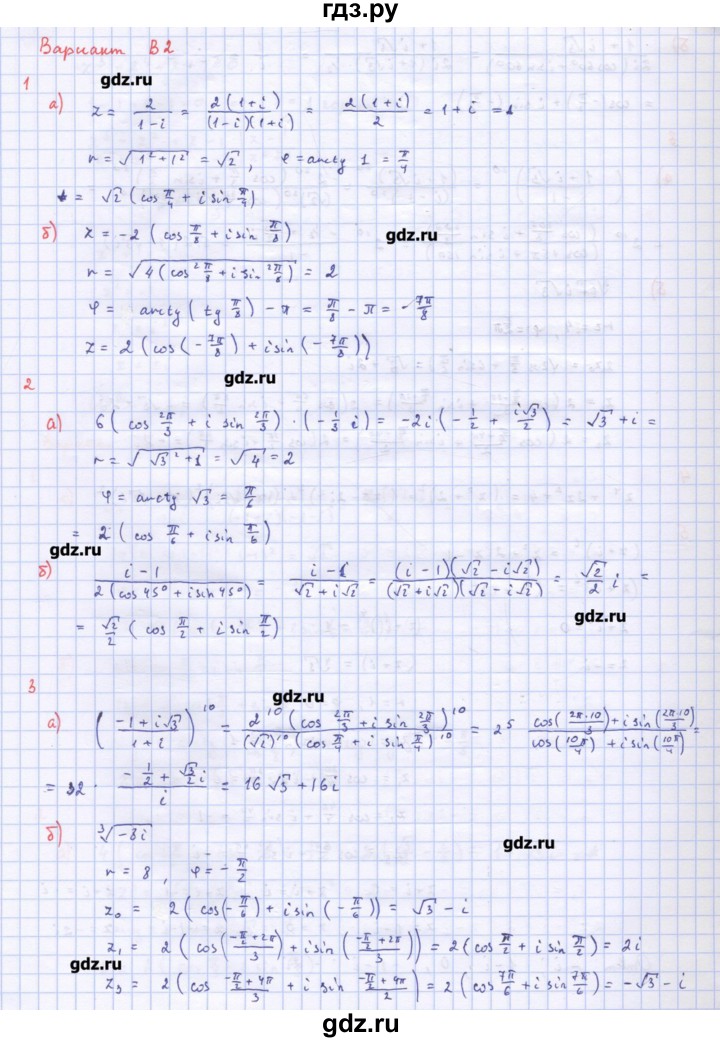 гдз.ру
Вариант В2
gdz.ru
1
а) z = 2/(1-i) = 2(1+i)/((1-i)(1+i)) = 2(1+i)/2 = 1+i =
r = √(1²+1²) = √2, φ = arctg 1 = π/4
= √2 (cos π/4 + i sin π/4)
б) z = -2 (cos π/8 + i sin π/8)
gdz.ru
r = √(4(cos² π/8 + i sin² π/8)) = 2
φ = arctg (tg π/8) - π = π/8 - π = -7π/8
z = 2 (cos(-7π/8) + i sin(-7π/8))
gdz.ru
2
а) 6 (cos 2π/3 + i sin 2π/3) · (-1/3 i) = -2i (-1/2 + i√3/2) = √3 + i =
r = √(√3² + 1) = √4 = 2
φ = arctg √3 = π/6
= 2 (cos π/6 + i sin π/6)
gdz.ru
б) (i-1)/(2(cos 45° + i sin 45°)) = (i-1)/(√2 + i√2) = (i-1)(√2 - i√2)/((√2 + i√2)(√2 - i√2)) = √2/2 i =
= √2/2 (cos π/2 + i sin π/2)
3
gdz.ru
а) ((-1+i√3)/(1+i))^10 = 2^10 (cos 2π/3 + i sin 2π/3)^10/((√2)^10 (cos π/4 + i sin π/4)^10) = 2^5 (cos(2π·10/3) + i sin(2π·10/3))/(cos(10π/4) + i sin(10π/4)) =
= 32 · (-1/2 + √3/2 i)/i = 16√3 + 16i
б) ³√(-8i)
gdz.ru
r = 8, φ = -π/2
z₀ = 2 (cos(-π/6) + i sin(-π/6)) = √3 - i
z₁ = 2 (cos((-π/2 + 2π)/3) + i sin((-π/2 + 2π)/3)) = 2 (cos π/2 + i sin π/2) = 2i
gdz.ru
z₃ = 2 (cos (-π/2 + 4π)/3 + i sin (-π/2 + 4π)/3) = 2 (cos 7π/6 + i sin 7π/6) = -√3 - i
gdz.ru